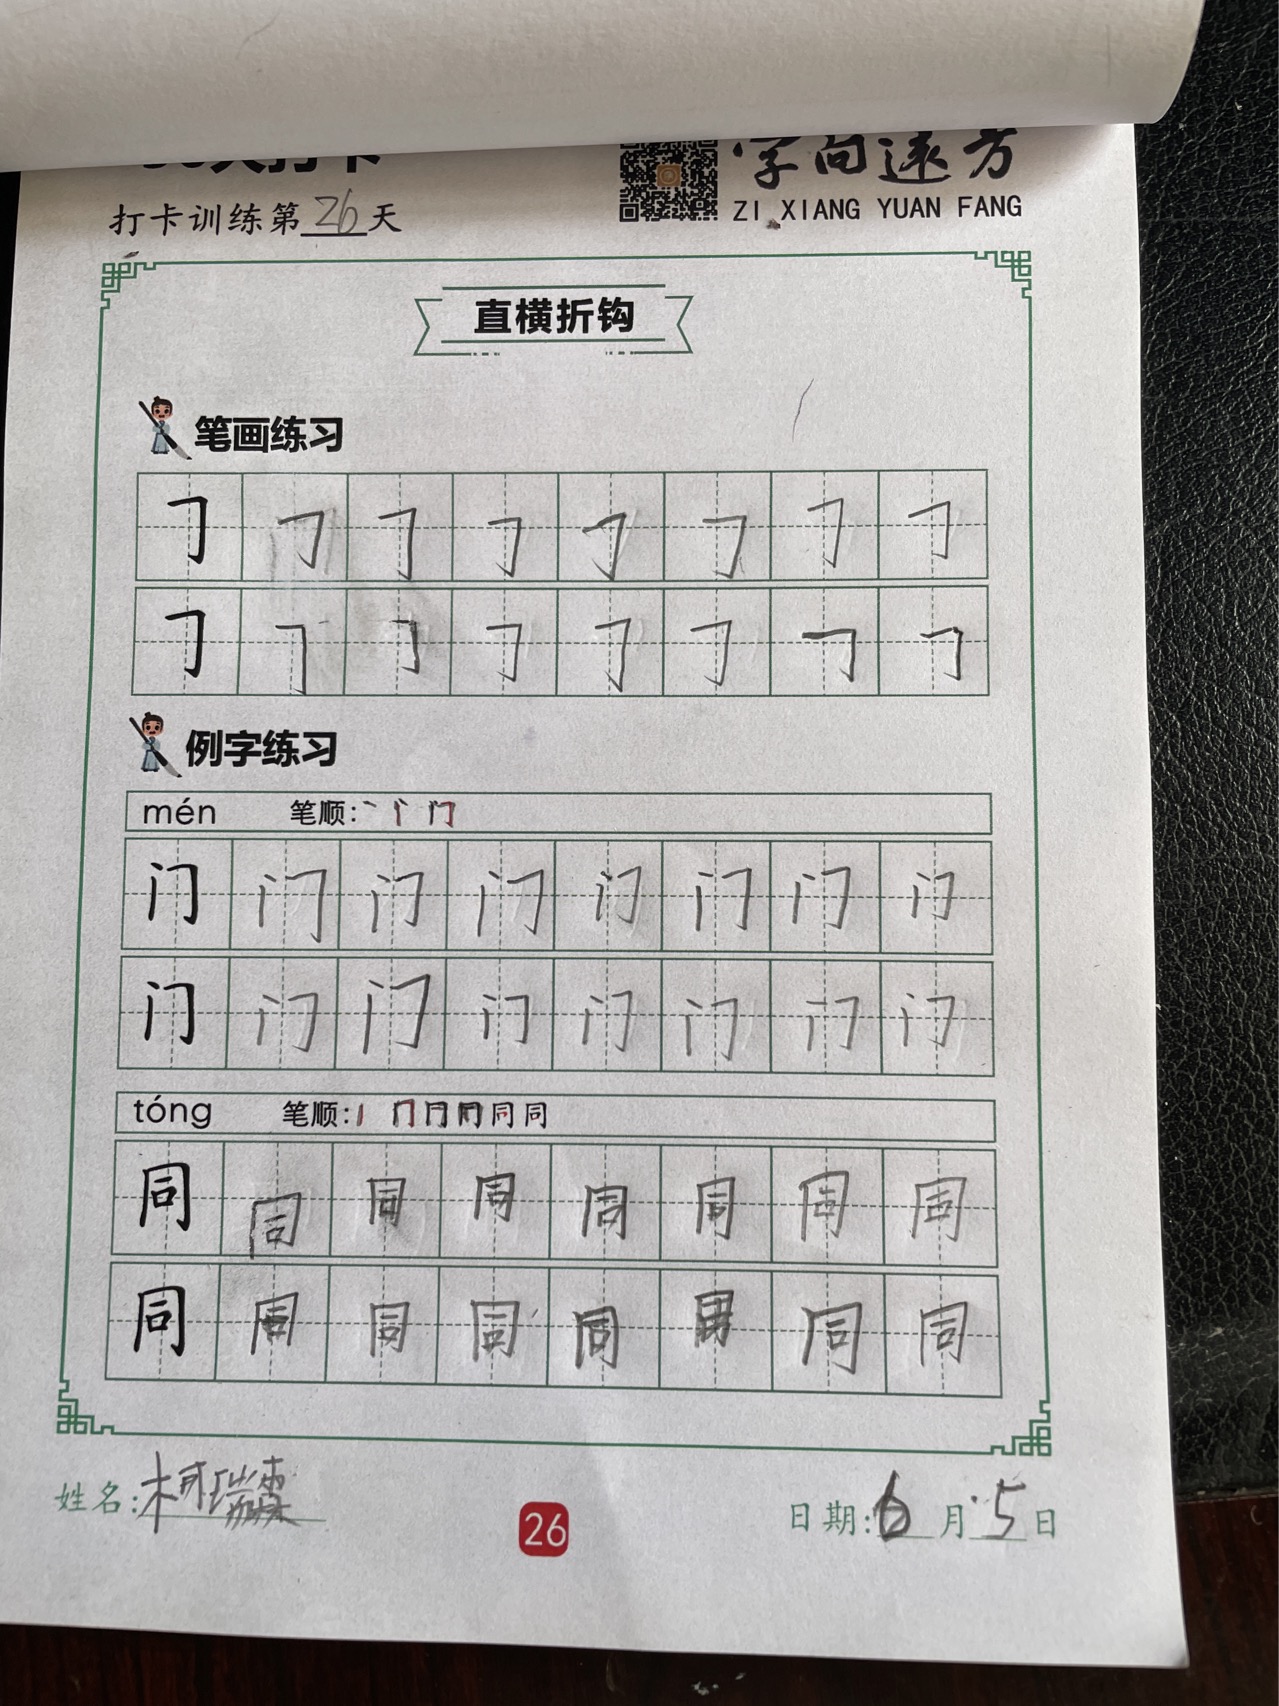 字向远方
打卡训练第26天
ZI XIANG YUAN FANG
直横折钩
笔画练习
㇆ ㇆ ㇆ ㇆ ㇆ ㇆ ㇆ ㇆
㇆ ㇆ ㇆ ㇆ ㇆ ㇆ ㇆ ㇆
例字练习
mén 笔顺:丶 门
门 门 门 门 门 门 门 门
门 门 门 门 门 门 门 门
tóng 笔顺:丨 冂 同 同
同 同 同 同 同 同 同 同
同 同 同 同 同 同 同 同
姓名:柯瑞霖
26
日期:6月5日